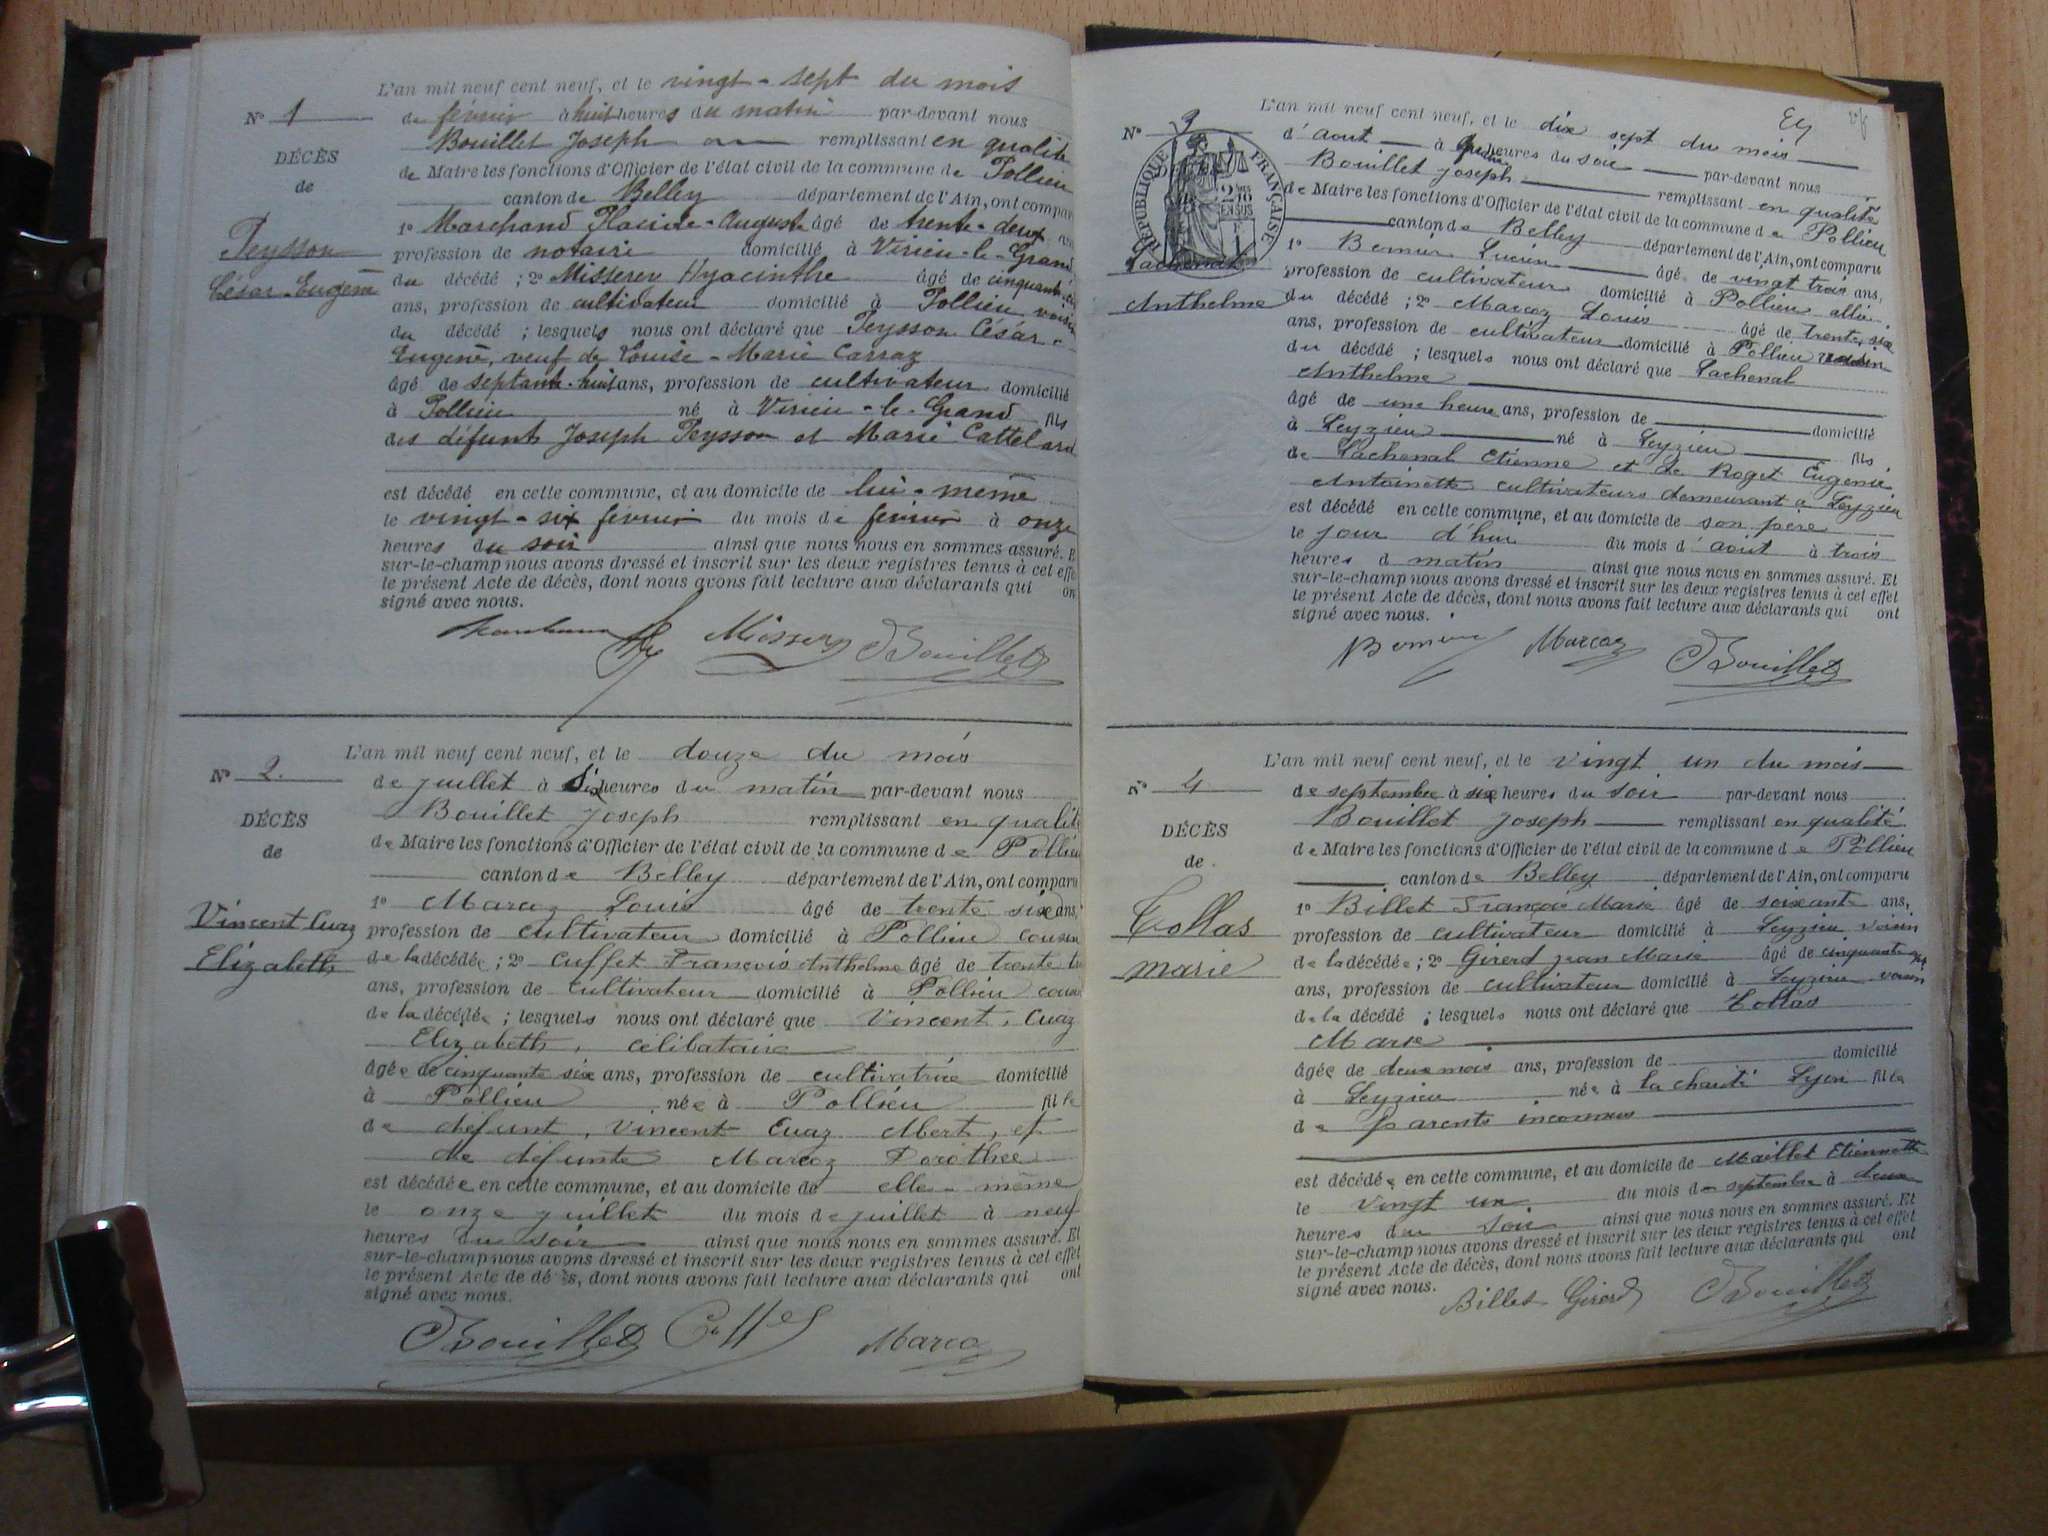 L'an mil neuf cent neuf, et le vingt-sept du mois
N° 1
de février à huit heures du matin par-devant nous
Bouillet Joseph remplissant en qualité
DÉCÈS
de Maire les fonctions d'Officier de l'état civil de la commune de Pollieu
de
canton de Belley département de l'Ain, ont compar
1° Marchand Placide-Auguste âgé de trente-deux ans
Peysson
profession de notaire domicilié à Virieu-le-Grand
César-Eugène
du décédé ; 2° Misserey Hyacinthe âgé de cinquante
ans, profession de cultivateur domicilié à Pollieu voisin
du décédé ; lesquels nous ont déclaré que Peysson César-
Eugène, veuf de Louise-Marie Carraz
âgé de septante-huit ans, profession de cultivateur domicilié
à Pollieu né à Virieu-le-Grand fils
des défunts Joseph Peysson et Marie Cattelard
est décédé en cette commune, et au domicile de lui-même
le vingt-six février du mois de février à onze
heures du soir ainsi que nous nous en sommes assuré. E
sur-le-champ nous avons dressé et inscrit sur les deux registres tenus à cet effe
le présent Acte de décès, dont nous avons fait lecture aux déclarants qui on
signé avec nous.
Misserey Bouillet
L'an mil neuf cent neuf, et le douze du mois
N° 2
de juillet à six heures du matin par-devant nous
Bouillet Joseph remplissant en qualité
DÉCÈS
de Maire les fonctions d'Officier de l'état civil de la commune de Pollieu
de
canton de Belley département de l'Ain, ont comparu
1° Marcoz Louis âgé de trente six ans,
Vincent Cuaz
profession de cultivateur domicilié à Pollieu cousin
Elizabeth
de la décédée ; 2° Cuffet François Anthelme âgé de trente
ans, profession de cultivateur domicilié à Pollieu cousin
de la décédée ; lesquels nous ont déclaré que Vincent, Cuaz
Elizabeth, célibataire
âgée de cinquante six ans, profession de cultivatrice domicilié
à Pollieu née à Pollieu fille
de défunt, Vincent Cuaz Albert, et
de défunte Marcoz Dorothée
est décédée en cette commune, et au domicile de elle-même
le onze juillet du mois de juillet à neuf
heures du soir ainsi que nous nous en sommes assuré. Et
sur-le-champ nous avons dressé et inscrit sur les deux registres tenus à cet effet
le présent Acte de décès, dont nous avons fait lecture aux déclarants qui ont
signé avec nous.
Bouillet Cuffet Marcoz
L'an mil neuf cent neuf, et le dix sept du mois
N° 3
d'aout à heures du soir par-devant nous
Bouillet Joseph remplissant en qualité
RÉPUBLIQUE FRANÇAISE
de Maire les fonctions d'Officier de l'état civil de la commune de Pollieu
canton de Belley département de l'Ain, ont comparu
1° Bernier Lucien âgé de vingt trois ans,
Lachenal
profession de cultivateur domicilié à Pollieu allié
Anthelme
du décédé ; 2° Marcoz Louis âgé de trente six
ans, profession de cultivateur domicilié à Pollieu voisin
du décédé ; lesquels nous ont déclaré que Lachenal
Anthelme
âgé de une heure ans, profession de domicilié
à Leyzieu né à Leyzieu fils
de Lachenal Etienne et de Roget Eugenie
Antoinette cultivateurs demeurant à Leyzieu
est décédé en cette commune, et au domicile de son père
le jour d'hui du mois d'août à trois
heures d matin ainsi que nous nous en sommes assuré. Et
sur-le-champ nous avons dressé et inscrit sur les deux registres tenus à cet effet
le présent Acte de décès, dont nous avons fait lecture aux déclarants qui ont
signé avec nous.
Bernier Marcoz Bouillet
L'an mil neuf cent neuf, et le vingt un du mois
N° 4
de septembre à six heures du soir par-devant nous
Bouillet Joseph remplissant en qualité
DÉCÈS
de Maire les fonctions d'Officier de l'état civil de la commune de Pollieu
de
canton de Belley département de l'Ain, ont comparu
1° Billet François Marie âgé de soixante ans,
Collas
profession de cultivateur domicilié à Leyzieu voisin
marie
de la décédée ; 2° Girerd jean Marie âgé de cinquante
ans, profession de cultivateur domicilié à Leyzieu voisin
de la décédé ; lesquels nous ont déclaré que Collas
Marie
âgée de deux mois ans, profession de domicilié
à Leyzieu née à la charité Lyon fille
de parents inconnus
est décédée en cette commune, et au domicile de Maillet Etiennette
le vingt un du mois de septembre à deux
heures du soir ainsi que nous nous en sommes assuré. Et
sur-le-champ nous avons dressé et inscrit sur les deux registres tenus à cet effet
le présent Acte de décès, dont nous avons fait lecture aux déclarants qui ont
signé avec nous.
Billet Girerd Bouillet